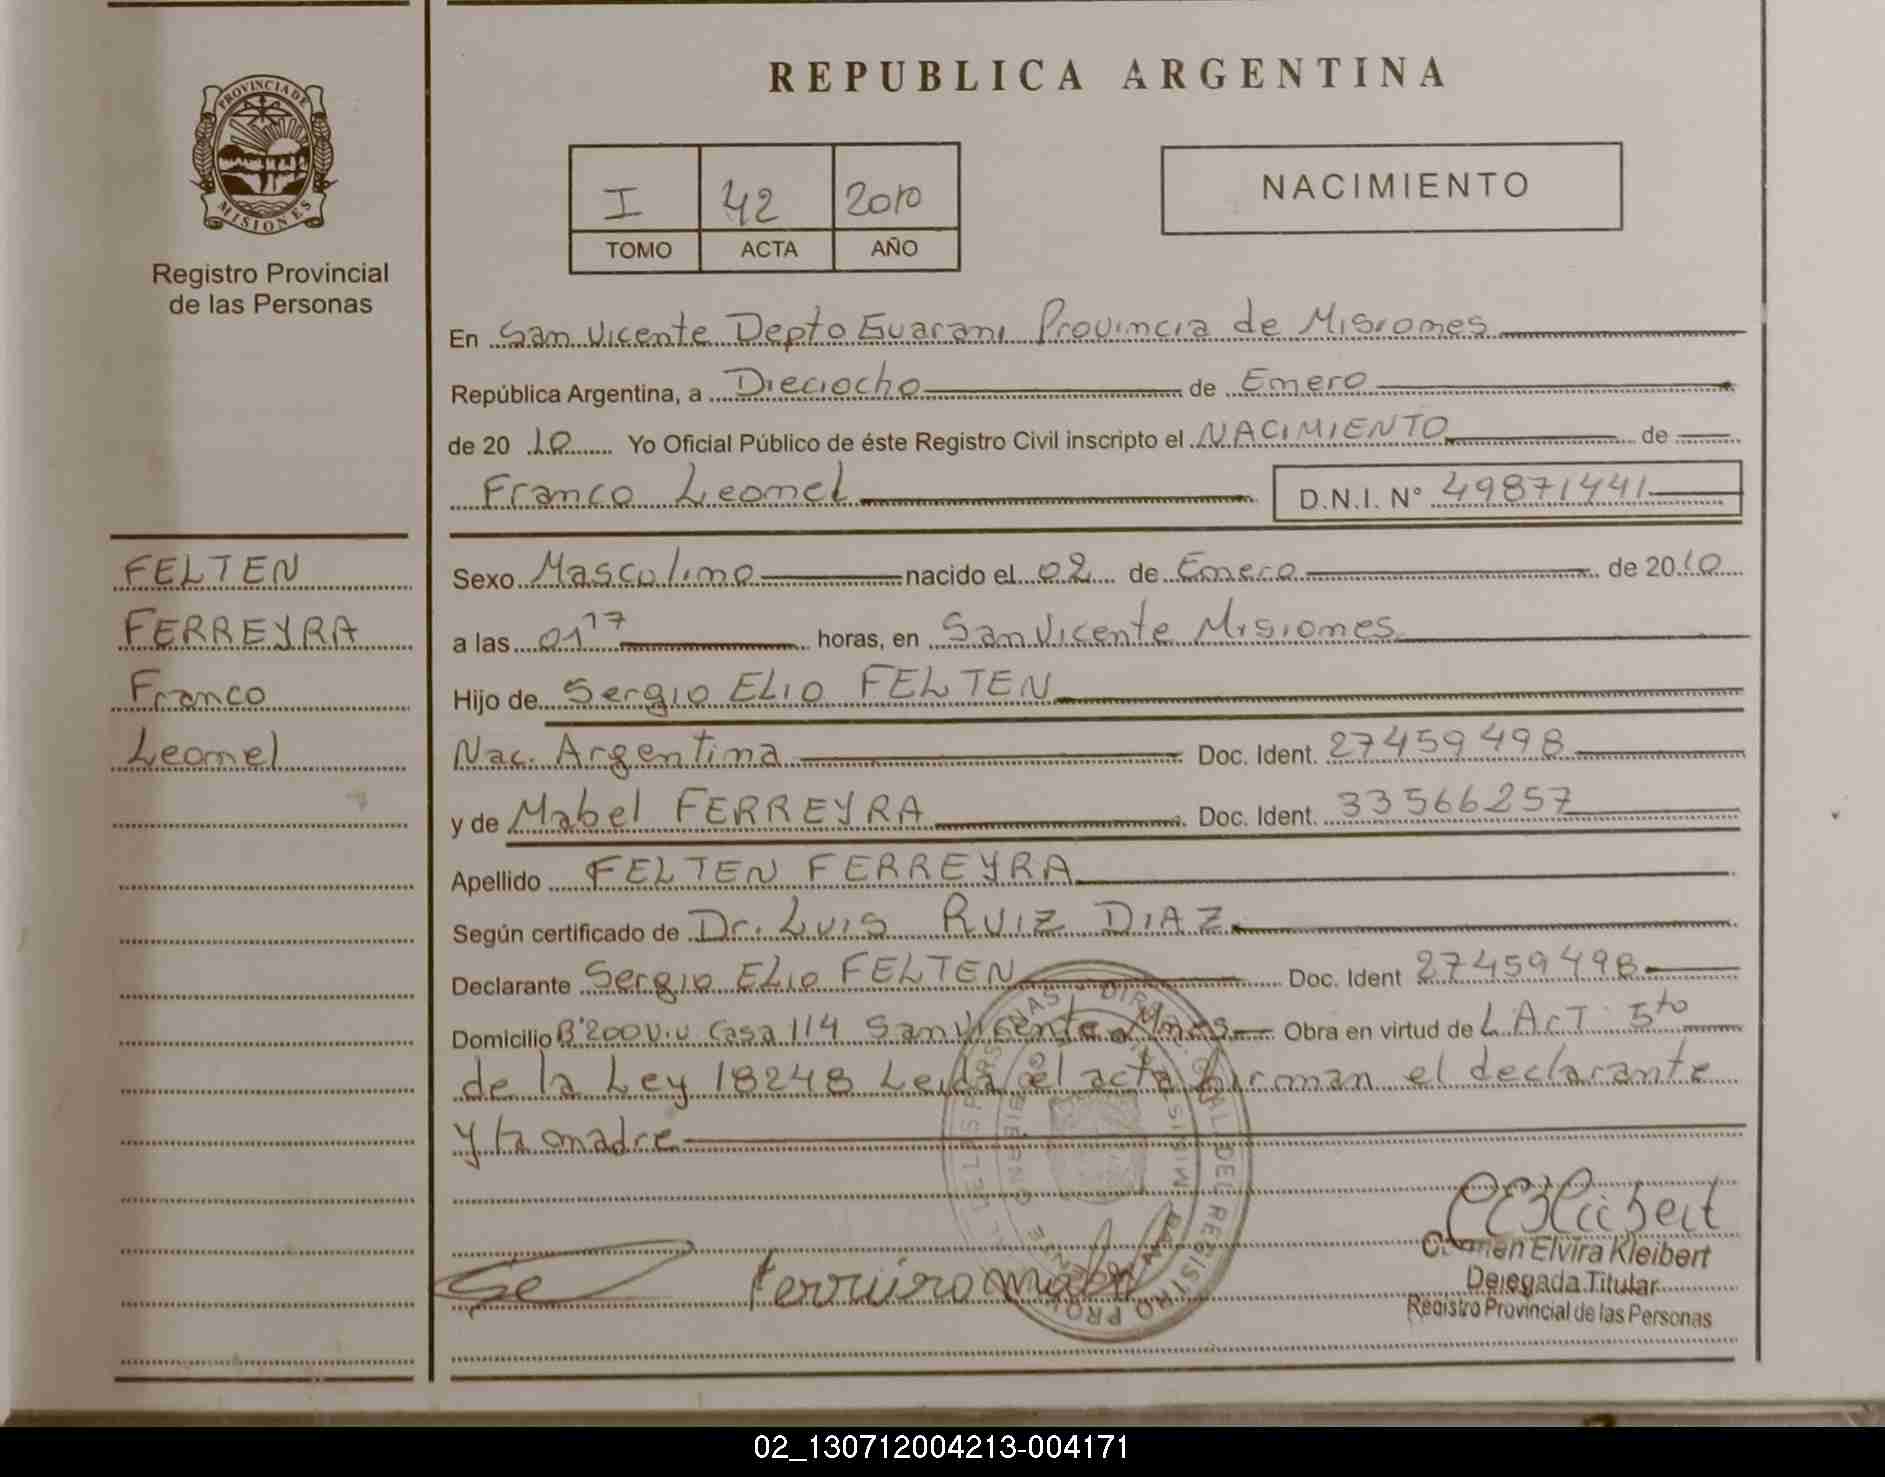 REPUBLICA ARGENTINA
PROVINCIA DE
MISIONES
Registro Provincial
de las Personas
I 42 2010
TOMO ACTA AÑO
NACIMIENTO
En San Vicente Depto Guarani Provincia de Misiones
República Argentina, a Dieciocho de Enero
de 20 10 Yo Oficial Público de éste Registro Civil inscripto el NACIMIENTO de
Franco Leonel D.N.I. N° 49871441
FELTEN
FERREYRA
Franco
Leonel
Sexo Masculino nacido el 02 de Enero de 2010
a las 01 17 horas, en San Vicente Misiones
Hijo de Sergio Elio FELTEN
Nac. Argentina Doc. Ident. 27459498
y de Mabel FERREYRA Doc. Ident. 33566257
Apellido FELTEN FERREYRA
Según certificado de Dr. Luis RUIZ DIAZ
Declarante Sergio Elio FELTEN Doc. Ident 27459498
Domicilio B° 200 Viv Casa 114 San Vicente Mnes Obra en virtud de L Art 5to
de la Ley 18248 Leida el acta firman el declarante
y la madre
Carmen Elvira Kleibert
Delegada Titular
Registro Provincial de las Personas
02_130712004213-004171